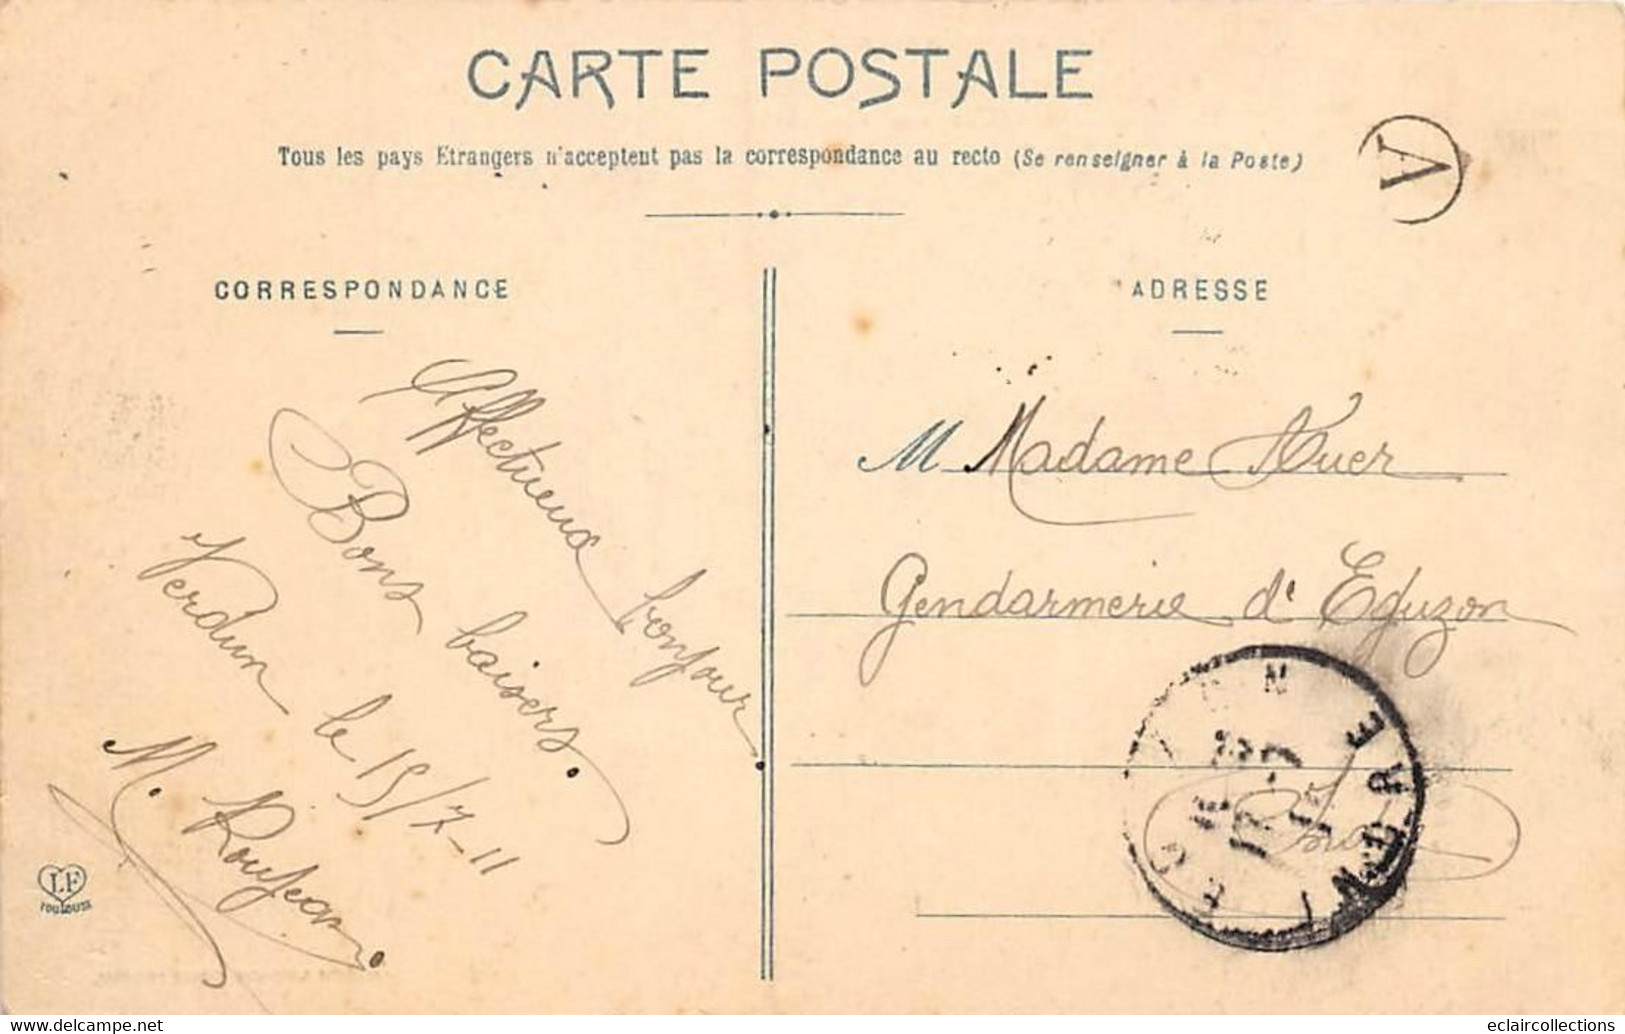 CARTE POSTALE
Tous les pays Etrangers n'acceptent pas la correspondance au recto (Se renseigner à la Poste)
A
CORRESPONDANCE
Affectueux bonjour
Bons baisers.
Verdun le 15/7-11
M. Roujean.
LF
TOULOUSE
ADRESSE
M Madame
Gendarmerie d' Eguzon
INDRE
delcampe.net
eclaircollections